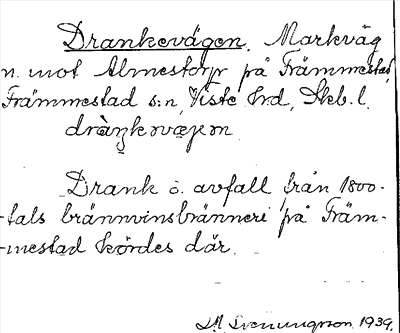 Drankevägen. Markväg
n. mot Almestorp på Främmestad,
Främmestad s:n, Viste hrd, Skb. l.
Drank o. avfall från 1800-
-tals brännvinsbränneri på Främ-
-mestad kördes där.
Svenungsson 1939.